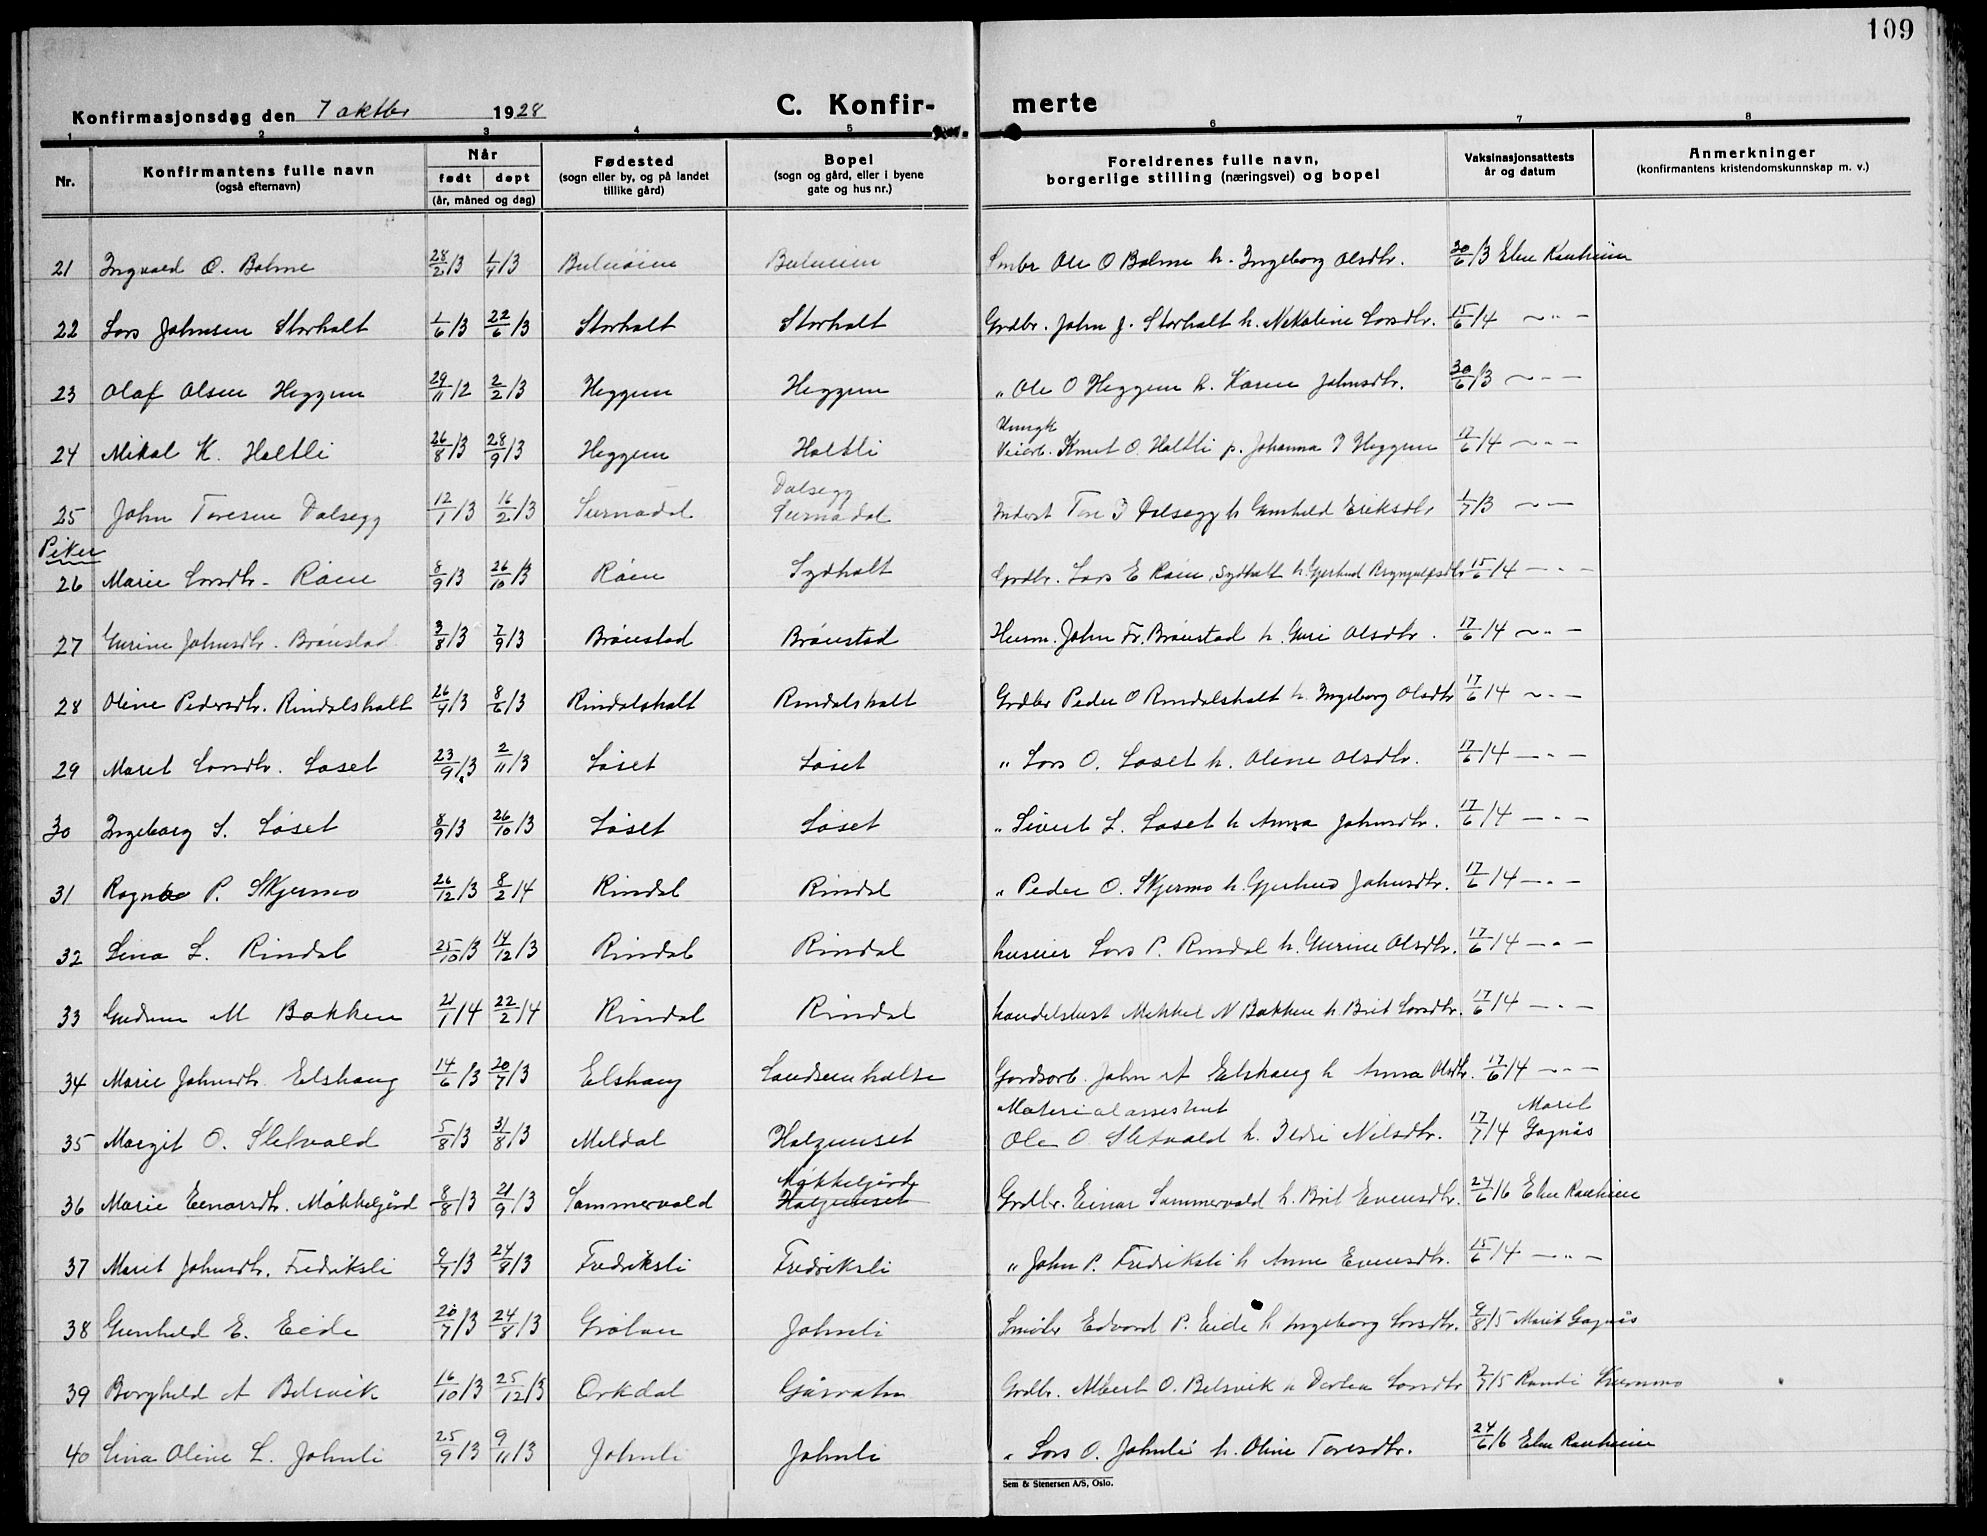 109
Konfirmasjonsdag den 7 oktbr 1928 C. Konfir- merte
1 2 3 4 5 6 7 8
Nr. Konfirmantens fulle navn (også efternavn) Når født døpt (år, måned og dag) Fødested (sogn eller by, og på landet tillike gård) Bopel (sogn og gård, eller i byene gate og hus nr.) Foreldrenes fulle navn, borgerlige stilling (næringsvei) og bopel Vaksinasjonsattests år og datum Anmerkninger (konfirmantens kristendomskunnskap m. v.)
21 Ingvald O. Bolme 28/2 13 1/4 13 Smbr Ole O Bolme h. Ingeborg Olsdtr. 30/6 13
22 Lars Johnsen Storholt 1/6 13 22/6 13 Storholt Storholt Grdbr. John J. Storholt h. Nekoline Larsdtr. 15/6 14 ~ " -
23 Olaf Olsen Heggem 29/11 12 2/2 13 Heggem Heggem " Ole O Heggem h. Karen Johnsdtr. 30/6 13 ~ - -
24 Mikal K. Holtli 26/8 13 28/9 13 Heggem Holtli Ungk Veiarb. Knut O. Holtli p. Johanna I Heggem 17/6 14 ~ - -
25 John Toresen Dalsegg 12/1 13 16/2 13 Surnadal Dalsegg Surnadal Inderst Tore I Dalsegg h Gunhild Eriksdtr 1/7 13 ~ -
Piker
26 Marie Larsdtr. Røen 8/9 13 26/10 13 Røen Sydholt Grdbr. Lars E Røen, Sydholt h. Gjertrud Brynjulfsdtr 15/6 14 - - -
27 Gurine Johnsdtr. Brønstad 3/8 13 7/9 13 Brønstad Brønstad Husm. John Fr. Brønstad h. Guri Olsdtr. 17/6 14 ~ " -
28 Oline Pedersdtr. Rindalsholt 26/4 13 8/6 13 Rindalsholt Rindalsholt Grdbr Peder O Rindalsholt h. Ingeborg Olsdtr 17/6 14 ~ - -
29 Marit Larsdtr. Løset 23/9 13 2/11 13 Løset Løset " Lars O. Løset h. Oline Olsdtr. 17/6 14 - - -
30 Ingeborg S. Løset 8/9 13 26/10 13 Løset Løset " Sivert L. Løset h Anna Johnsdtr. 17/6 14 - - -
31 Ragna P. Skjermo 26/12 13 8/2 14 Rindal Rindal " Peder O. Skjermo h. Gjertrud Johnsdtr. 17/6 14 - - -
32 Lina L. Rindal 25/10 13 14/12 13 Rindal Rindal huseier Lars P. Rindal h. Gurine Olsdtr. 17/6 14 - " -
33 Gudrun M Bakken 21/1 14 22/2 14 Rindal Rindal handelsbest Mikkel N Bakken h Brit Larsdtr. 17/6 14 - - -
34 Marie Johnsdtr. Elshaug 14/6 13 20/7 13 Elshaug Gardsarb. John A Elshaug h Anna Olsdtr. 17/6 14 - - -
35 Margit O. Sletvold 5/8 13 31/8 13 Meldal Helgumset Materialassistent Ole O Sletvold h. Ildri Nilsdtr. 17/7 14 Marit Gagnås
36 Marie Einarsdtr. Møkkelgård 8/8 13 21/9 13 Sommervold Møkkelgård Helgumset Grdbr. Einar Sommervold h. Brit Evensdtr. 24/6 16
37 Marit Johnsdtr. Fredriksli 9/7 13 24/8 13 Fredriksli Fredriksli " John P. Fredriksli h Anne Evensdtr. 15/6 14 - " -
38 Gunhild E. Eide 20/7 13 24/8 13 Grøtan Johnli Smbr Edvard P. Eide h Ingeborg Larsdtr. 9/8 15 Marit Gagnås
39 Borghild A Belsvik 16/10 13 25/12 13 Orkdal Gåsvatn Grdbr. Albert O. Belsvik h Dortea Larsdtr 2/7 15 Randi Skjermo
40 Lina Oline L. Johnli 25/9 13 9/11 13 Johnli Johnli " Lars O. Johnli h. Oline Toresdtr. 24/6 16
Sem & Stenersen A/S, Oslo.